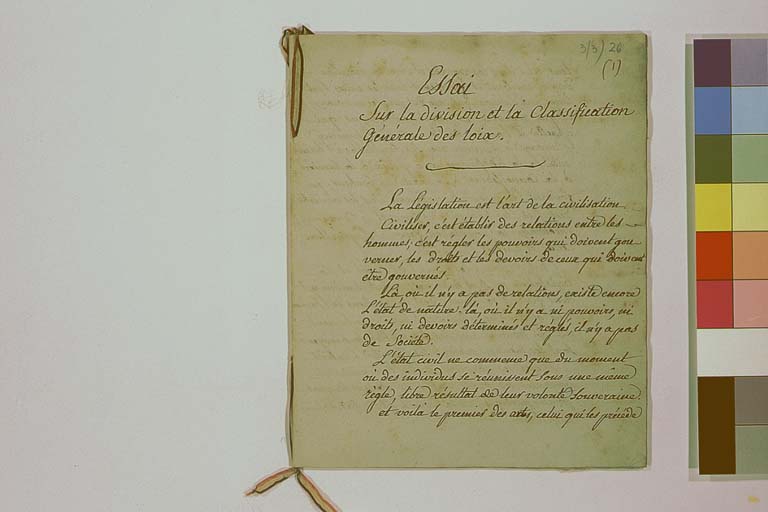 3/3/26
(1)
Essai
Sur la division et la Classification
Générale des loix.
La Législation est l'art de la civilisation
Civiliser, c'est établir des relations entre les
hommes; c'est régler les pouvoirs qui doivent gou-
verner, les droits et les devoirs de ceux qui doivent
etre gouvernés.
Là, où il n'y a pas de relations, existe encore
l'état de nature. là, où il n'y a ni pouvoirs, ni
droits, ni devoirs déterminés et réglés, il n'y a pas
de Société.
L'état civil ne commence que du moment
où des individus se réunissent sous une même
règle, libre résultat de leur volonté souveraine.
et voilà le premier des arts, celui qui les précède